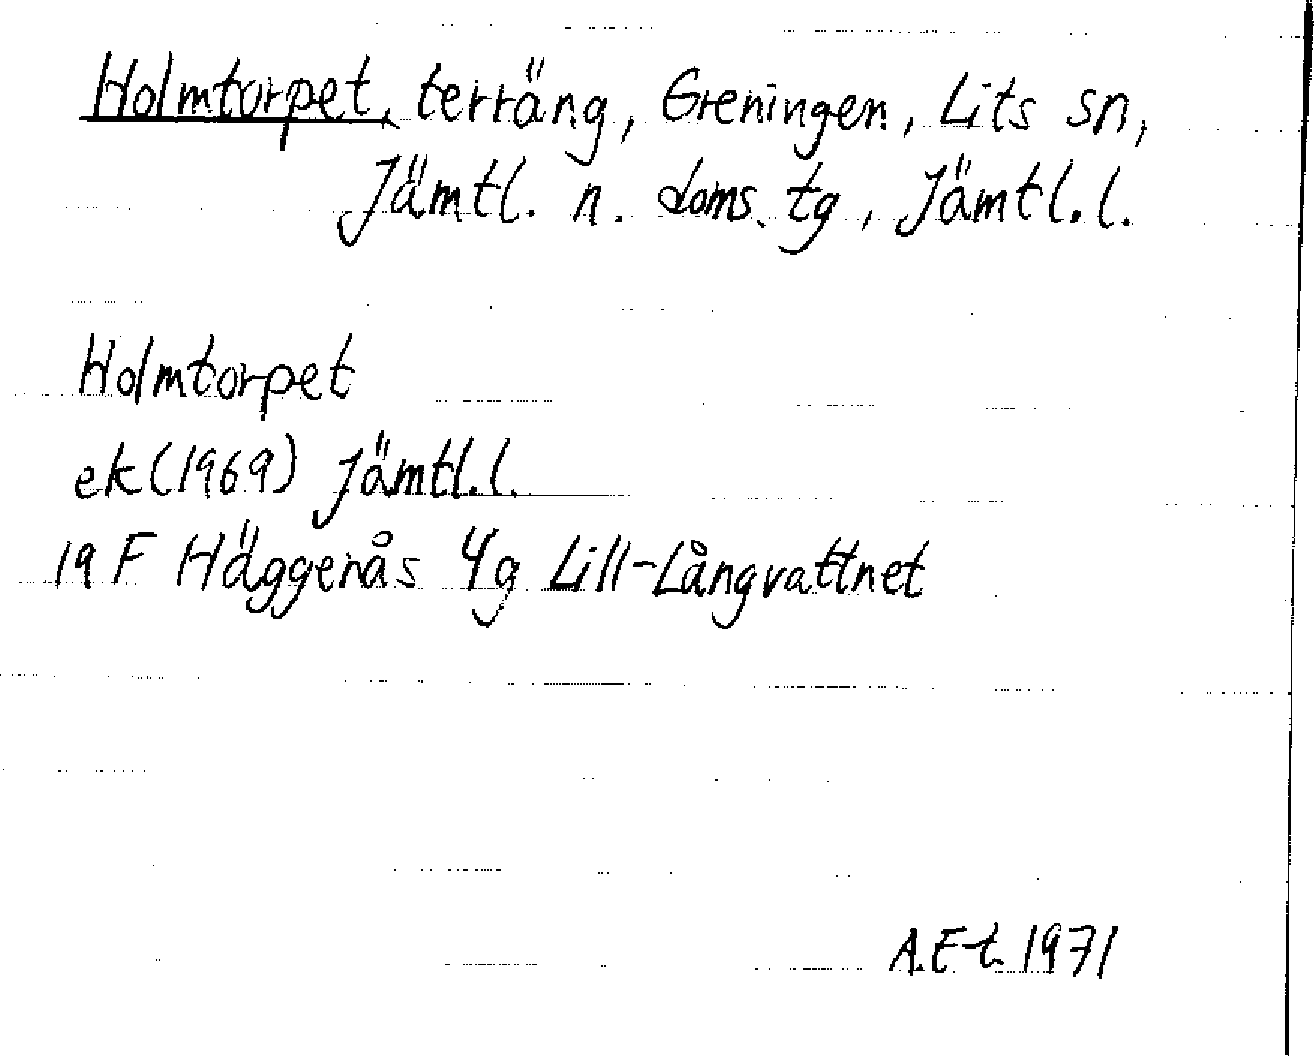 Holmtorpet, terräng, Greningen, Lits sn,
Jämtl. n. doms. tg, Jämtl. l.
Holmtorpet
ek (1969) Jämtl. l.
19 F Häggenås 4g Lill-Långvattnet
A. E-t 1971